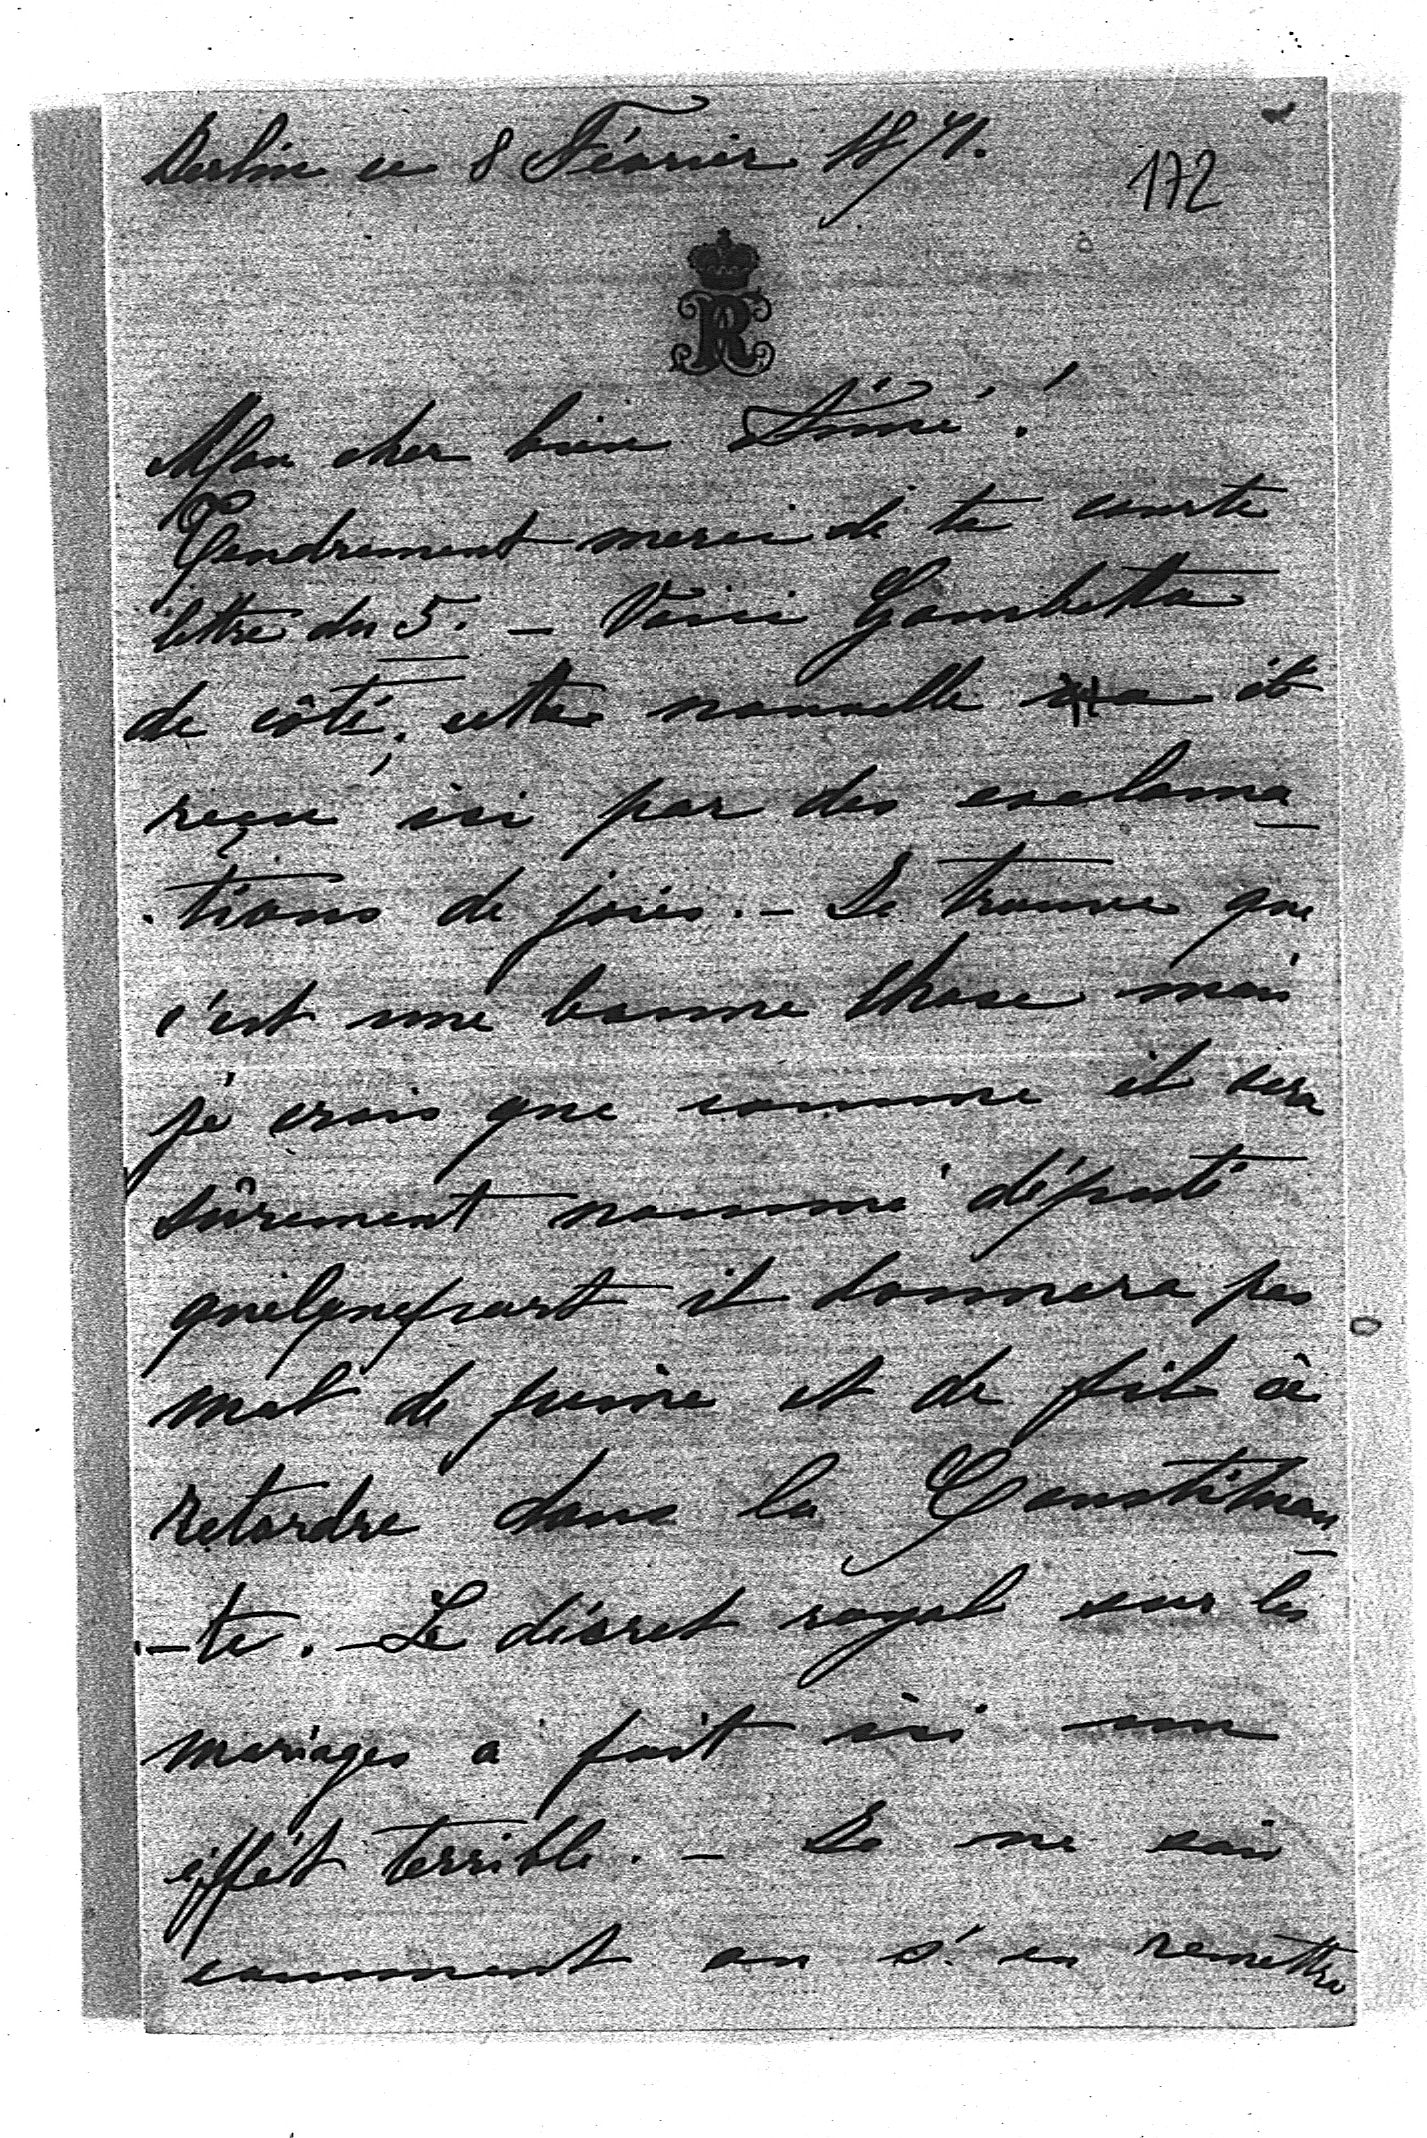 Berlin ce 8 Février 1871.
172
R
Mon cher bien Aimé!
Tendrement merci de ta courte
lettre du 5. – Voici Gambetta
de côté, cette nouvelle a ét
reçue ici par des exclama
-tions de joies. – Je trouve que
c'est une bonne chose mais
je crois que comme il sera
sûrement nommé député
quelquepart il donnera pas
mal de peine et de fil à
retordre dans la Constituan
-te. – Le décret royal sur les
mariages a fait ici un
effet terrible. – Je ne sais
comment on s'en remettra